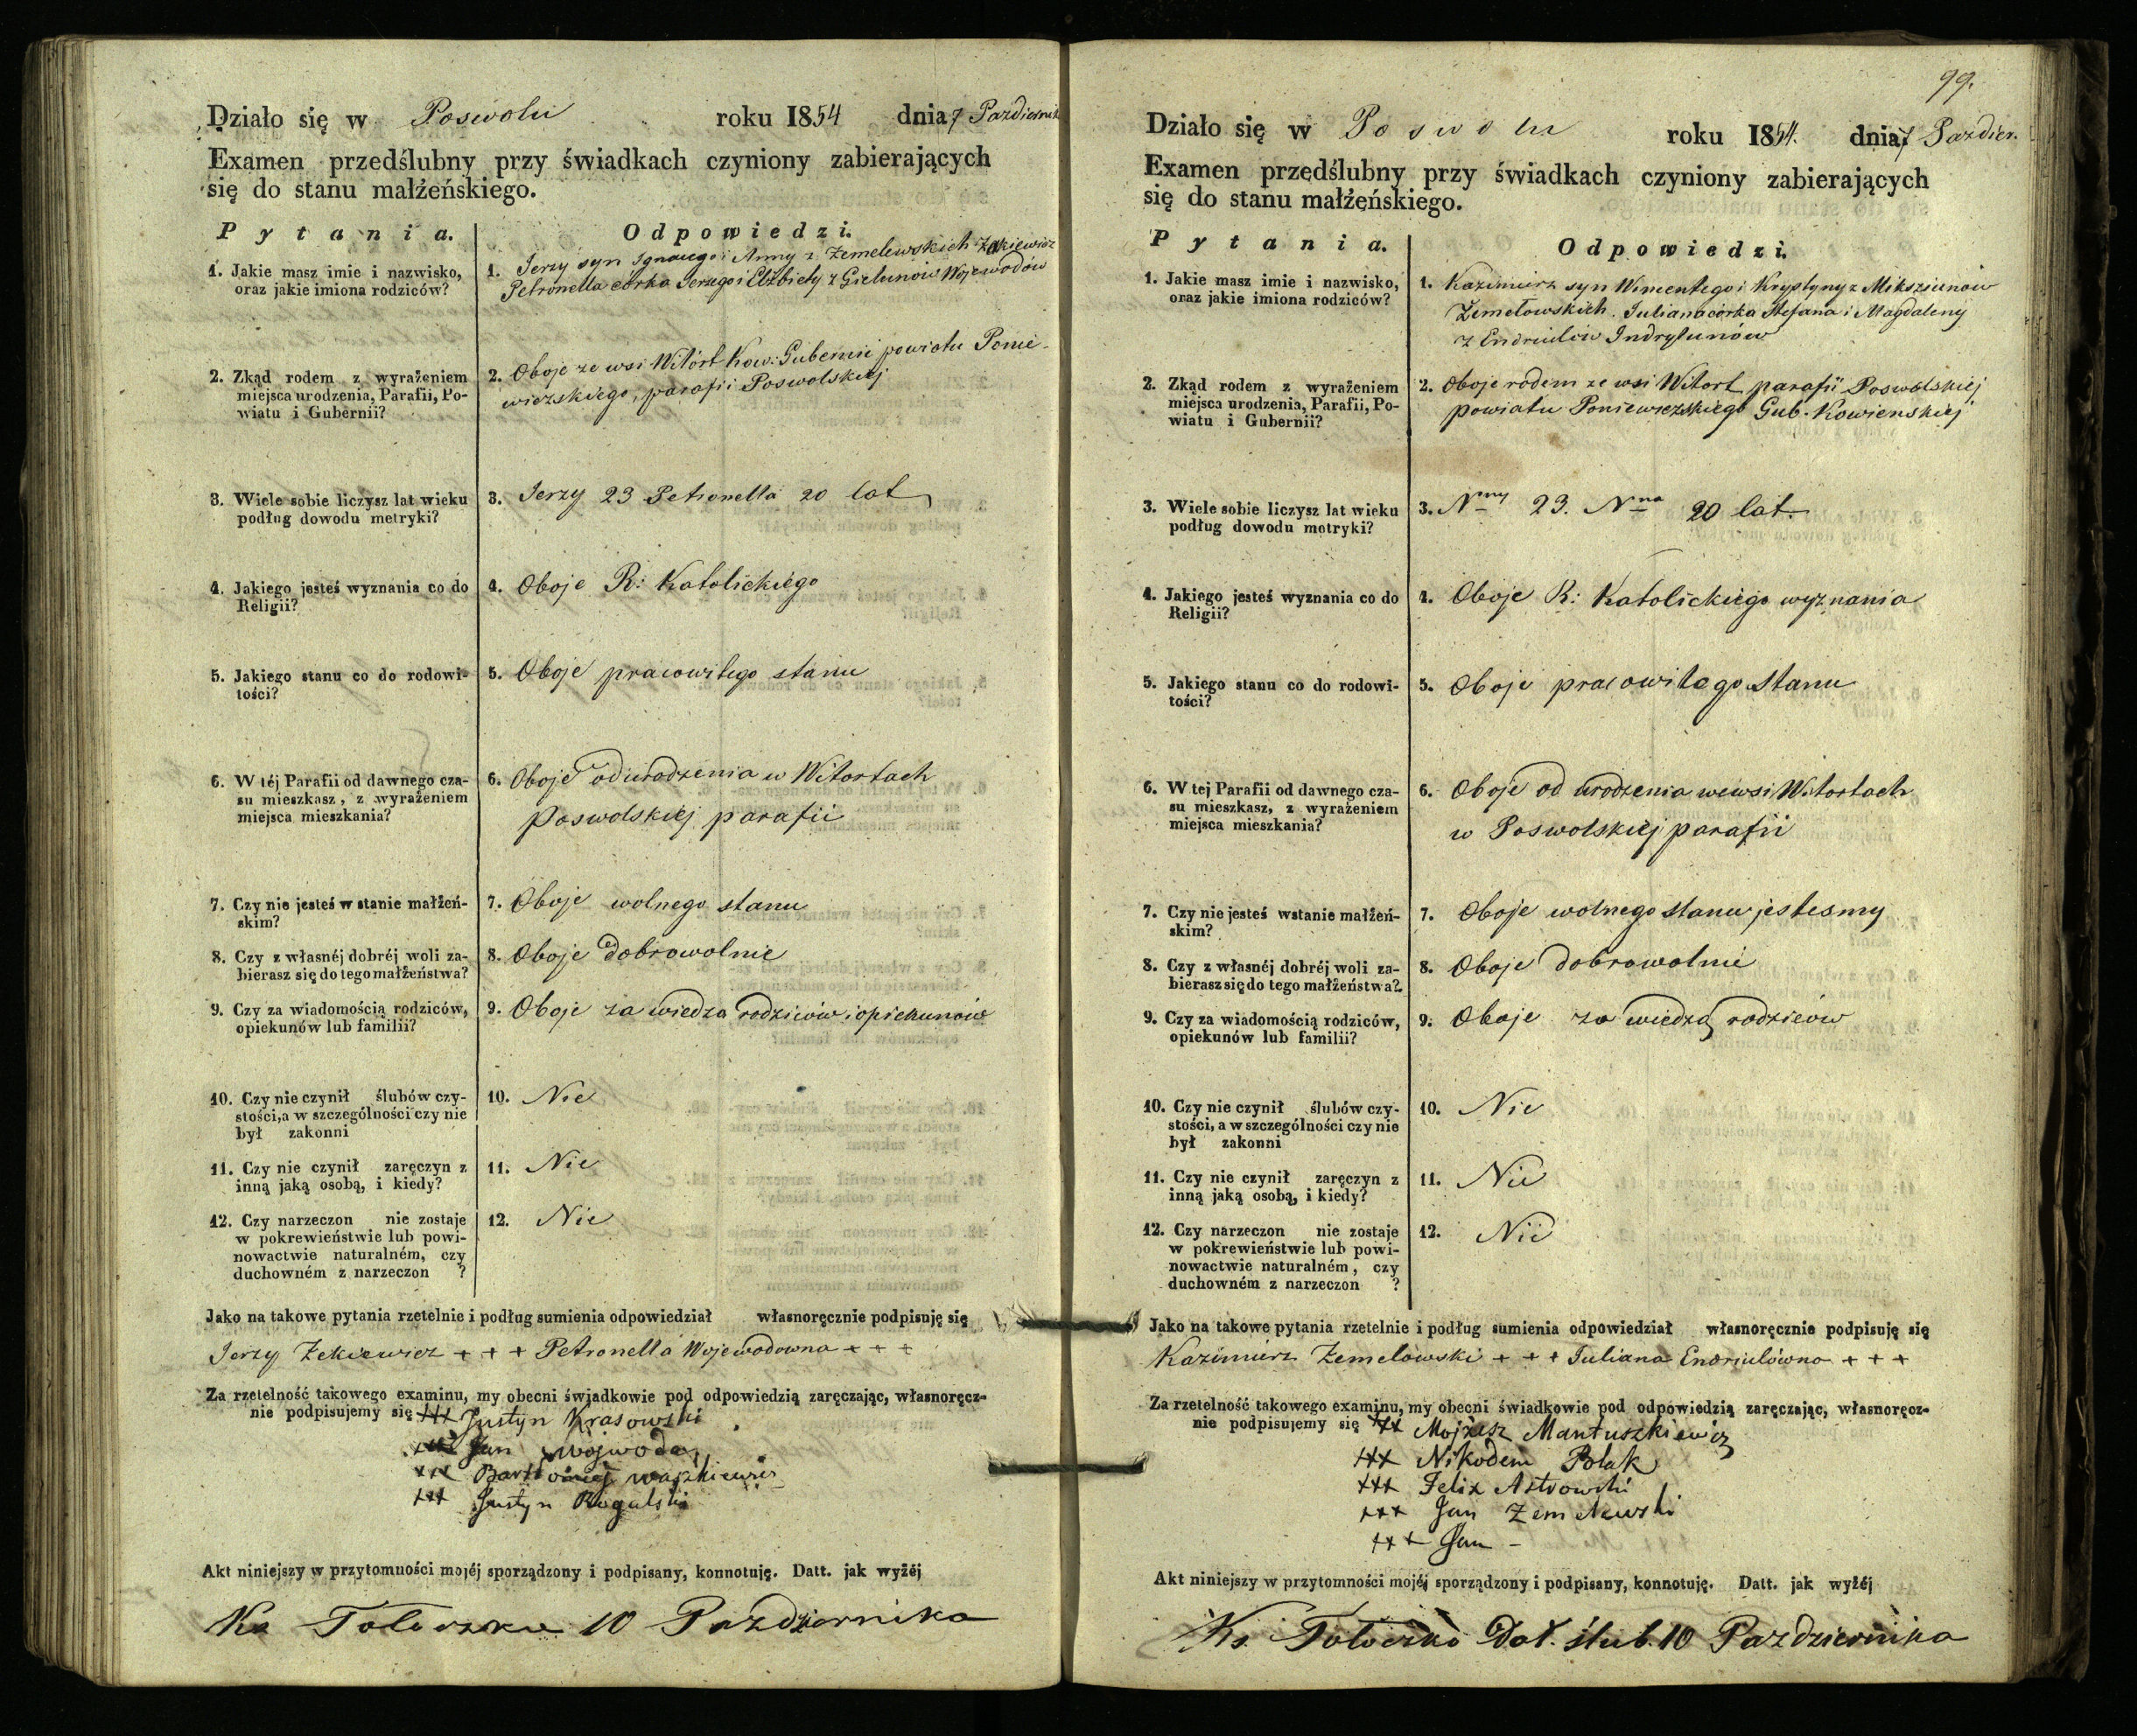 Działo się w Poswolu roku 1854 dnia 7 Pazdziernik
Examen przedślubny przy świadkach czyniony zabierających
się do stanu małżeńskiego.
Pytania. Odpowiedzi.
1. Jakie masz imie i nazwisko,
oraz jakie imiona rodziców?
1. Jerzy syn Ignacego i Anny z Zemelewskich Zekiewicz
Petronella córka Jerzego i Elżbiety z Gielunow Wojewodów
2. Zkąd rodem z wyrażeniem
miejsca urodzenia, Parafii, Po-
wiatu i Gubernii?
2. Oboje ze wsi Witort Kow: Gubernii powiatu Ponie-
wiezskiego, parafii Poswolskiej
3. Wiele sobie liczysz lat wieku
podług dowodu metryki?
3. Jerzy 23 Petronella 20 lat
4. Jakiego jesteś wyznania co do
Religii?
4. Oboje R: Katolickiego
5. Jakiego stanu co do rodowi-
tości?
5. Oboje pracowitego stanu
6. W téj Parafii od dawnego cza-
su mieszkasz, z wyrażeniem
miejsca mieszkania?
6. Oboje od urodzenia w Witortach
Poswolskiej parafii
7. Czy nie jesteś w stanie małżeń-
skim?
7. Oboje wolnego stanu
8. Czy z własnéj dobréj woli za-
bierasz się do tego małżeństwa?
8. Oboje dobrowolnie
9. Czy za wiadomością rodziców,
opiekunów lub familii?
9. Oboje za wiedza rodziców i opiekunów
10. Czy nie czynił ślubów czy-
stości, a w szczególności czy nie
był zakonni
10. Nie
11. Czy nie czynił zaręczyn z
inną jaką osobą, i kiedy?
11. Nie
12. Czy narzeczon nie zostaje
w pokrewieństwie lub powi-
nowactwie naturalném, czy
duchowném z narzeczon ?
12. Nie
Jako na takowe pytania rzetelnie i podług sumienia odpowiedział własnoręcznie podpisuję się
Jerzy Zekiewicz + + + Petronella Wojewodowna + + +
Za rzetelność takowego examinu, my obecni świadkowie pod odpowiedzią zaręczając, własnoręcz-
nie podpisujemy się +++ Justyn Krasowski
+++ Jan Wojwoda
+++ Bartłomiej Waszkiewicz
+++ Justyn Rogulski
Akt niniejszy w przytomności mojéj sporządzony i podpisany, konnotuję. Datt. jak wyżéj
Ks Toloczko 10 Pazdziernika
99.
Działo się w Poswolu roku 1854. dnia 7 Pazdzier.
Examen przedślubny przy świadkach czyniony zabierających
się do stanu małżeńskiego.
Pytania. Odpowiedzi.
1. Jakie masz imie i nazwisko,
oraz jakie imiona rodziców?
1. Kazimierz syn Wincentego i Krystyny z Mikszienow
Zemełowskich. Juliana córka Stefana i Magdaleny
z Endrulów Indrylunów
2. Zkąd rodem z wyrażeniem
miejsca urodzenia, Parafii, Po-
wiatu i Gubernii?
2. Oboje rodem ze wsi Witort parafii Poswolskiej
powiatu Poniewiezskiego Gub. Kowienskiej
3. Wiele sobie liczysz lat wieku
podług dowodu metryki?
3. Nny 23. Nna 20 lat
4. Jakiego jesteś wyznania co do
Religii?
4. Oboje R: Katolickiego wyznania
5. Jakiego stanu co do rodowi-
tości?
5. Oboje pracowitego stanu
6. W tej Parafii od dawnego cza-
su mieszkasz, z wyrażeniem
miejsca mieszkania?
6. Oboje od urodzenia we wsi Witortach
w Poswolskiej parafii
7. Czy nie jesteś wstanie małżeń-
skim?
7. Oboje wolnego stanu jestesmy
8. Czy z własnéj dobréj woli za-
bierasz się do tego małżeństwa?
8. Oboje dobrowolnie
9. Czy za wiadomością rodziców,
opiekunów lub familii?
9. Oboje za wiedzą rodzicow
10. Czy nie czynił ślubów czy-
stości, a w szczególności czy nie
był zakonni
10. Nie
11. Czy nie czynił zaręczyn z
inną jaką osobą, i kiedy?
11. Nie
12. Czy narzeczon nie zostaje
w pokrewieństwie lub powi-
nowactwie naturalném, czy
duchowném z narzeczon ?
12. Nie
Jako na takowe pytania rzetelnie i podług sumienia odpowiedział własnoręcznie podpisuję się
Kazimierz Zemelowski + + + Juliana Endrulówna + + +
Za rzetelność takowego examinu, my obecni świadkowie pod odpowiedzią zaręczając, własnoręcz-
nie podpisujemy się +++ Mojżesz Mantuszkiewicz
+++ Nikodem Polak
+++ Felix Astrowski
+++ Jan Zemelewski
+++ Jan -
Akt niniejszy w przytomności mojéj sporządzony i podpisany, konnotuję. Datt. jak wyżéj
Ks. Toloczko Dat. ślub. 10 Pazdziernika